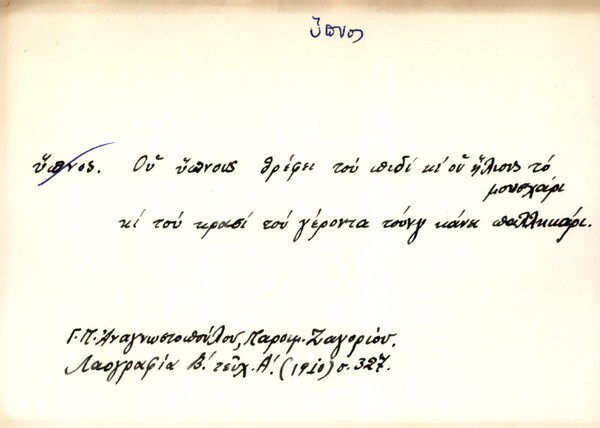 ὕπνος
ὕπνος. Οὗ ὕπνους θρέφει τοὺ πιδί κι οὗ ἥλιους τὸ
μουσχάρι
κὶ τοὺ κρασί τοὺ γέροντα τοὺν κάνει παλληκάρι.
Γ. Π. Ἀναγνωστοπούλου, Παροιμ. Ζαγορίου.
Λαογραφία Β΄. τεῦχ. Α΄. (1910) σ. 327.